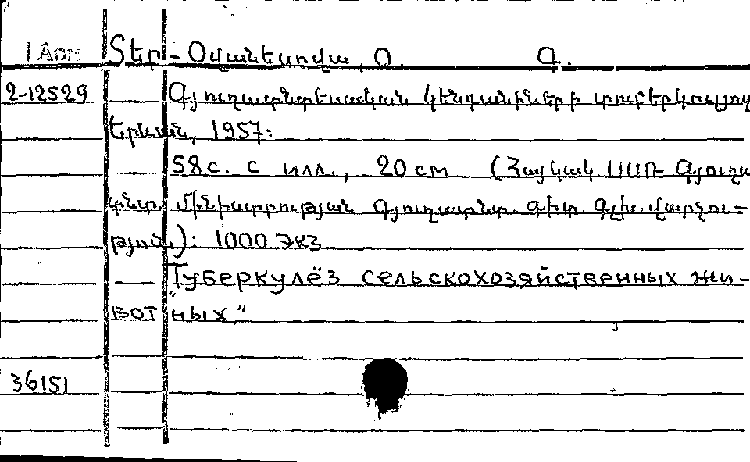 1 Арм Տեր-Օվանեսովա, Օ. Գ.
2-12529 Գյուղատնտեսական կենդանիների տուբերկուլյոզ
Երևան, 1957:
58 с. с илл., 20 см (Հայկակ ՍՍՌ Գյուղա
տնտ. մինիստրության Գյուղատնտ. գիտ. գլխ. վարչու=
թյուն.): 1000 экз
Туберкулёз сельскохозяйственных жи-
вот"ных"
36151